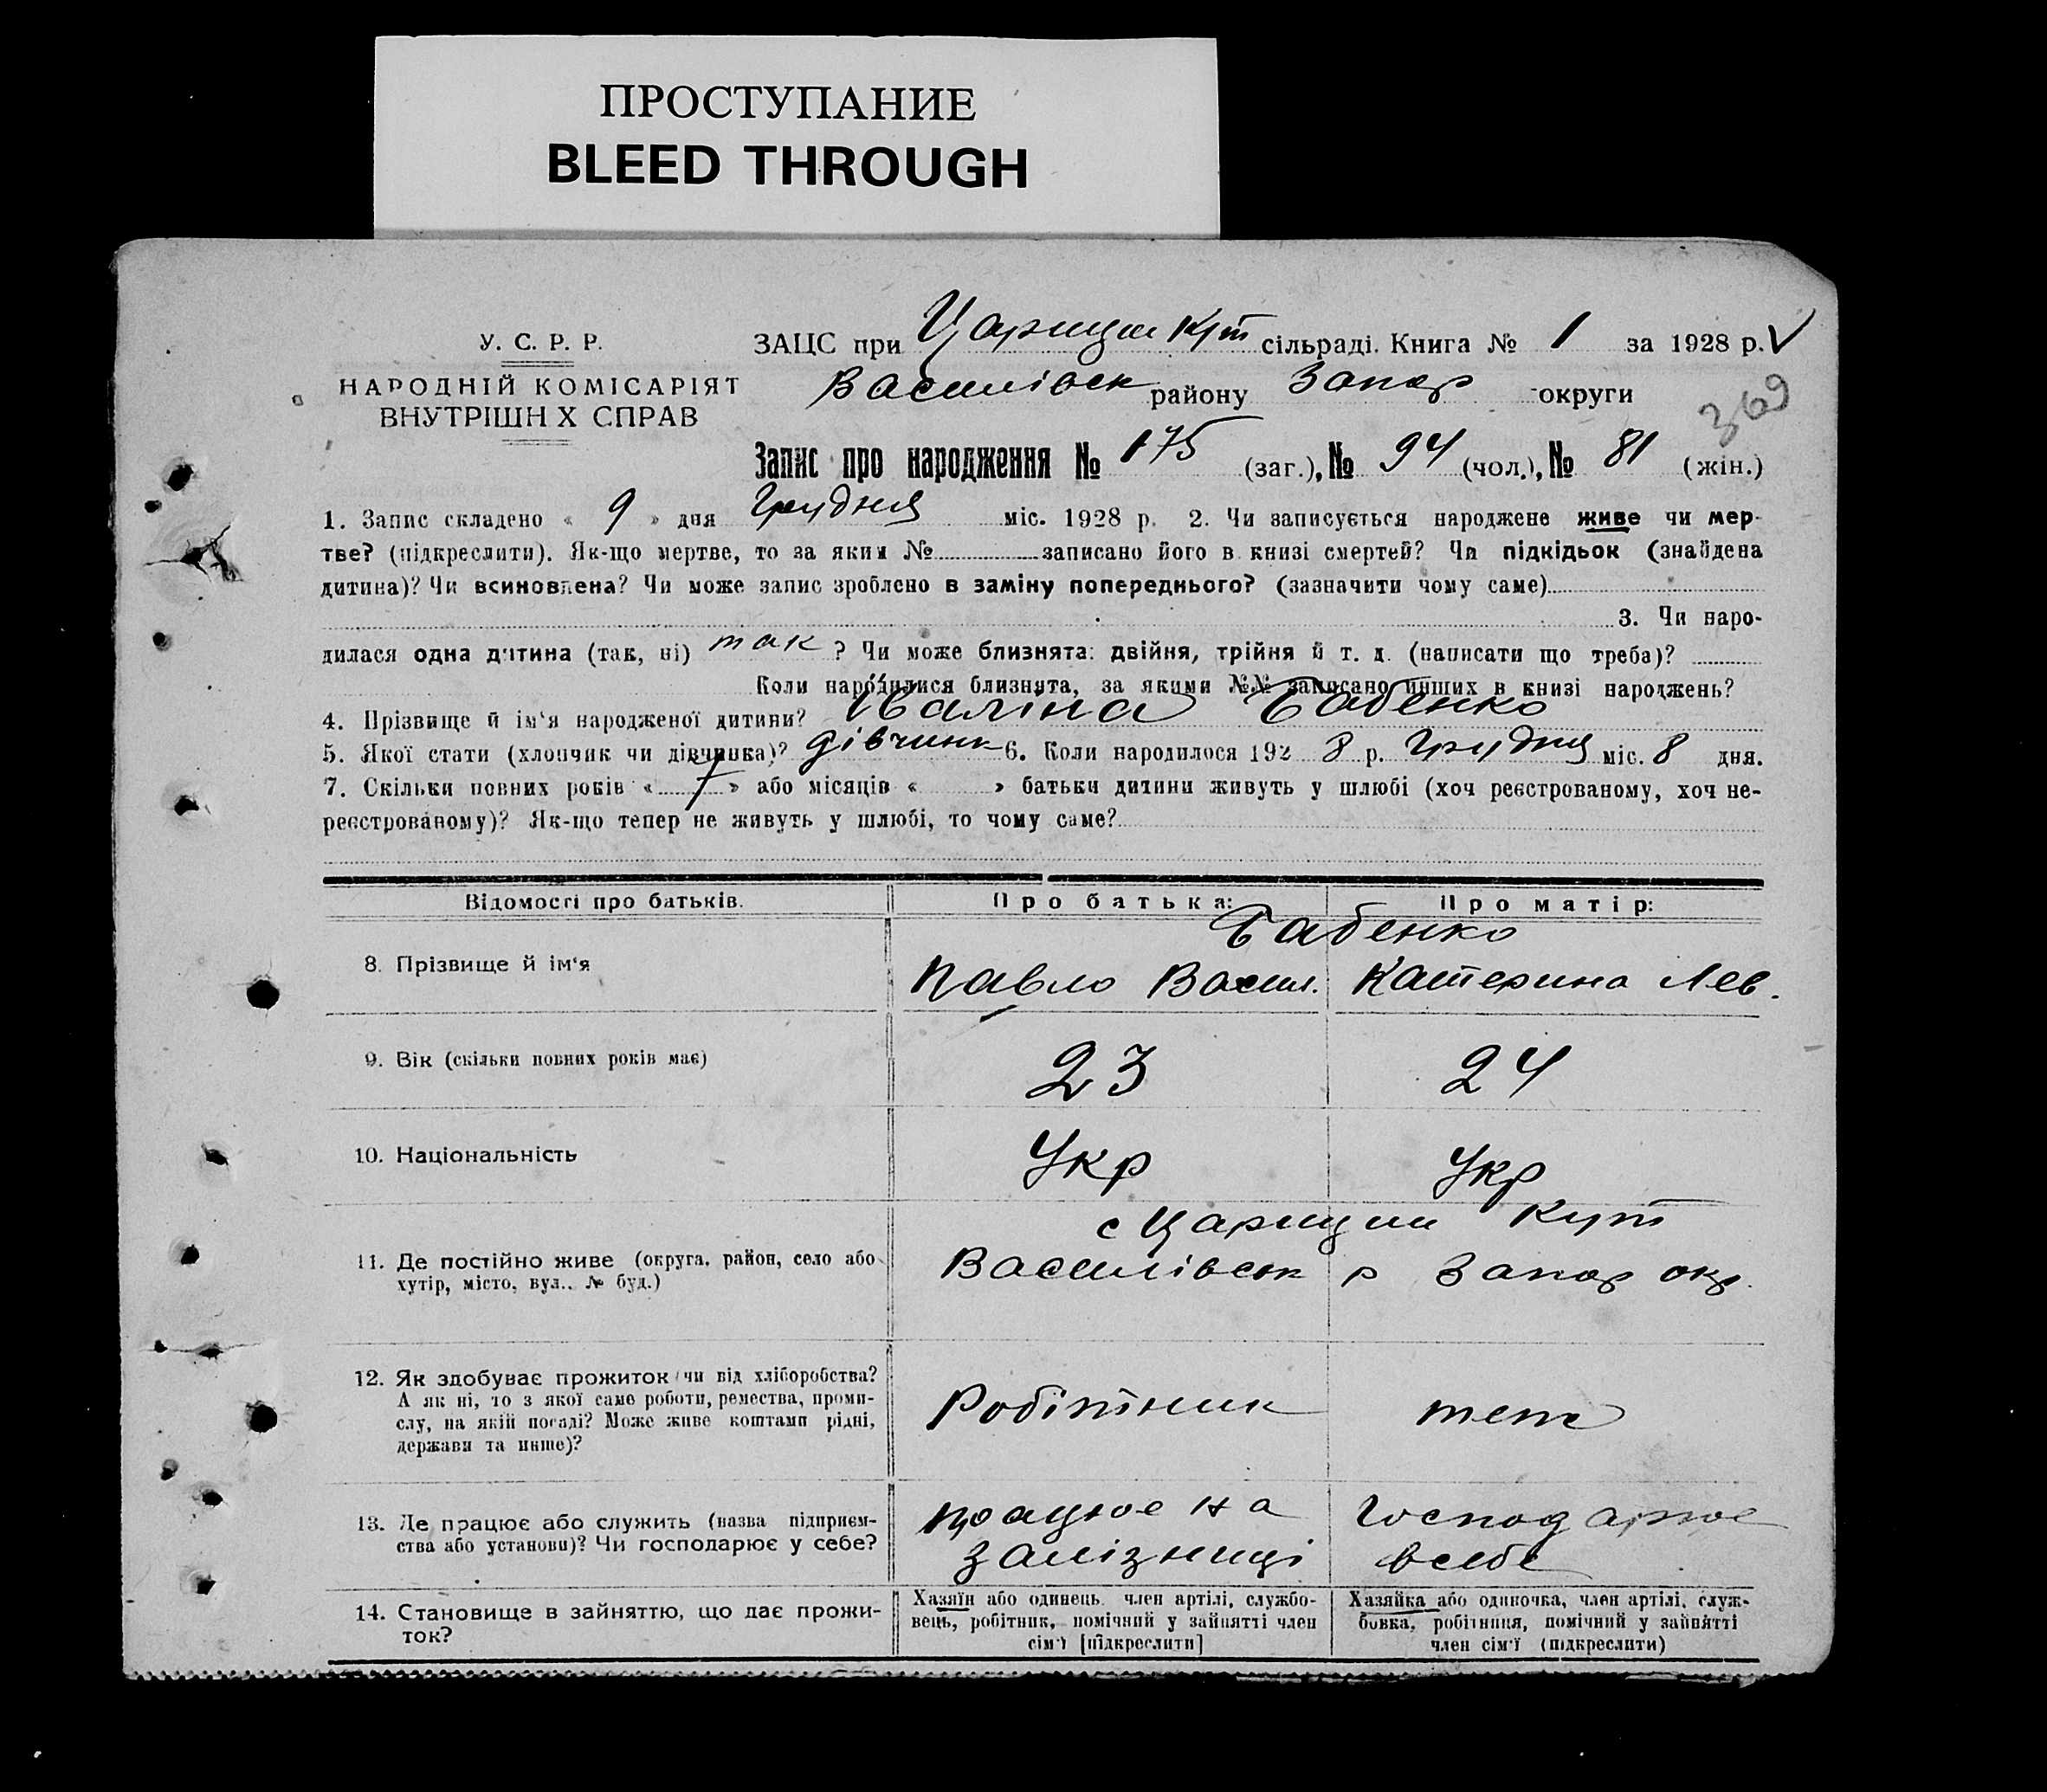 ПРОСТУПАНИЕ
BLEED THROUGH
У. С. Р. Р.
НАРОДНІЙ КОМІСАРІЯТ
ВНУТРІШН Х СПРАВ
ЗАЦС при Царицин Кут сільраді. Книга № 1 за 1928 р. V
Василівськ району Запор округи
369
Запис про народження № 175 (заг.), № 94 (чол.), № 81 (жін.)
1. Запис складено « 9 » дня Грудня міс. 1928 р. 2. Чи записується народжене живе чи мер-
тве? (підкреслити). Як-що мертве, то за яким № записано його в книзі смертей? Чи підкідьок (знайдена
дитина)? Чи всиновлена? Чи може запис зроблено в заміну попереднього? (зазначити чому саме)
3. Чи наро-
дилася одна дитина (так, ні) так ? Чи може близнята: двійня, трійня й т. д. (написати що треба)?
Коли народилися близнята, за якими №№ записано инших в книзі народжень?
4. Прізвище й ім'я народженої дитини? Бабенко
5. Якої стати (хлопчик чи дівчинка)? дівчинк 6. Коли народилося 192 8 р. Грудня міс. 8 дня.
7. Скільки повних років « 7 » або місяців « » батьки дитини живуть у шлюбі (хоч реєстрованому, хоч не-
реєстрованому)? Як-що тепер не живуть у шлюбі, то чому саме?
Відомості про батьків. Про батька: Про матір:
Бабенко
8. Прізвище й ім'я Павло Васил. Катерина Лев.
9. Вік (скільки повних років має) 23 24
10. Національність Укр Укр
с Царицин Кут
11. Де постійно живе (округа, район, село або Василівськ р Запор окр.
хутір, місто, вул.. № буд.)
12. Як здобуває прожиток (чи від хліборобства?
А як ні, то з якої саме роботи, ремества, проми-
слу, на якій посаді? Може живе коштами рідні,
держави та инше)?
Робітник теж
13. Де працює або служить (назва підприєм-
ства або установи)? Чи господарює у себе?
працює на
залізниці
Господарює
в себе
14. Становище в зайняттю, що дає прожи-
ток?
Хазяїн або одинець, член артілі, службо-
вець, робітник, помічний у зайнятті член
сім'ї [підкреслити]
Хазяйка або одиночка, член артілі, служ-
бовка, робітниця, помічний у зайнятті
член сім'ї (підкреслити)